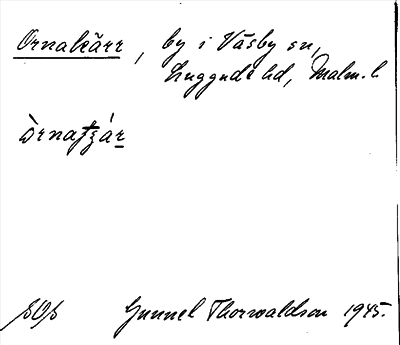 Ornakärr, by i Väsby sn,
Luggude hd, Malm. l.
òrnaʈʂár
SOS Gunnel Thorwaldson 1945.